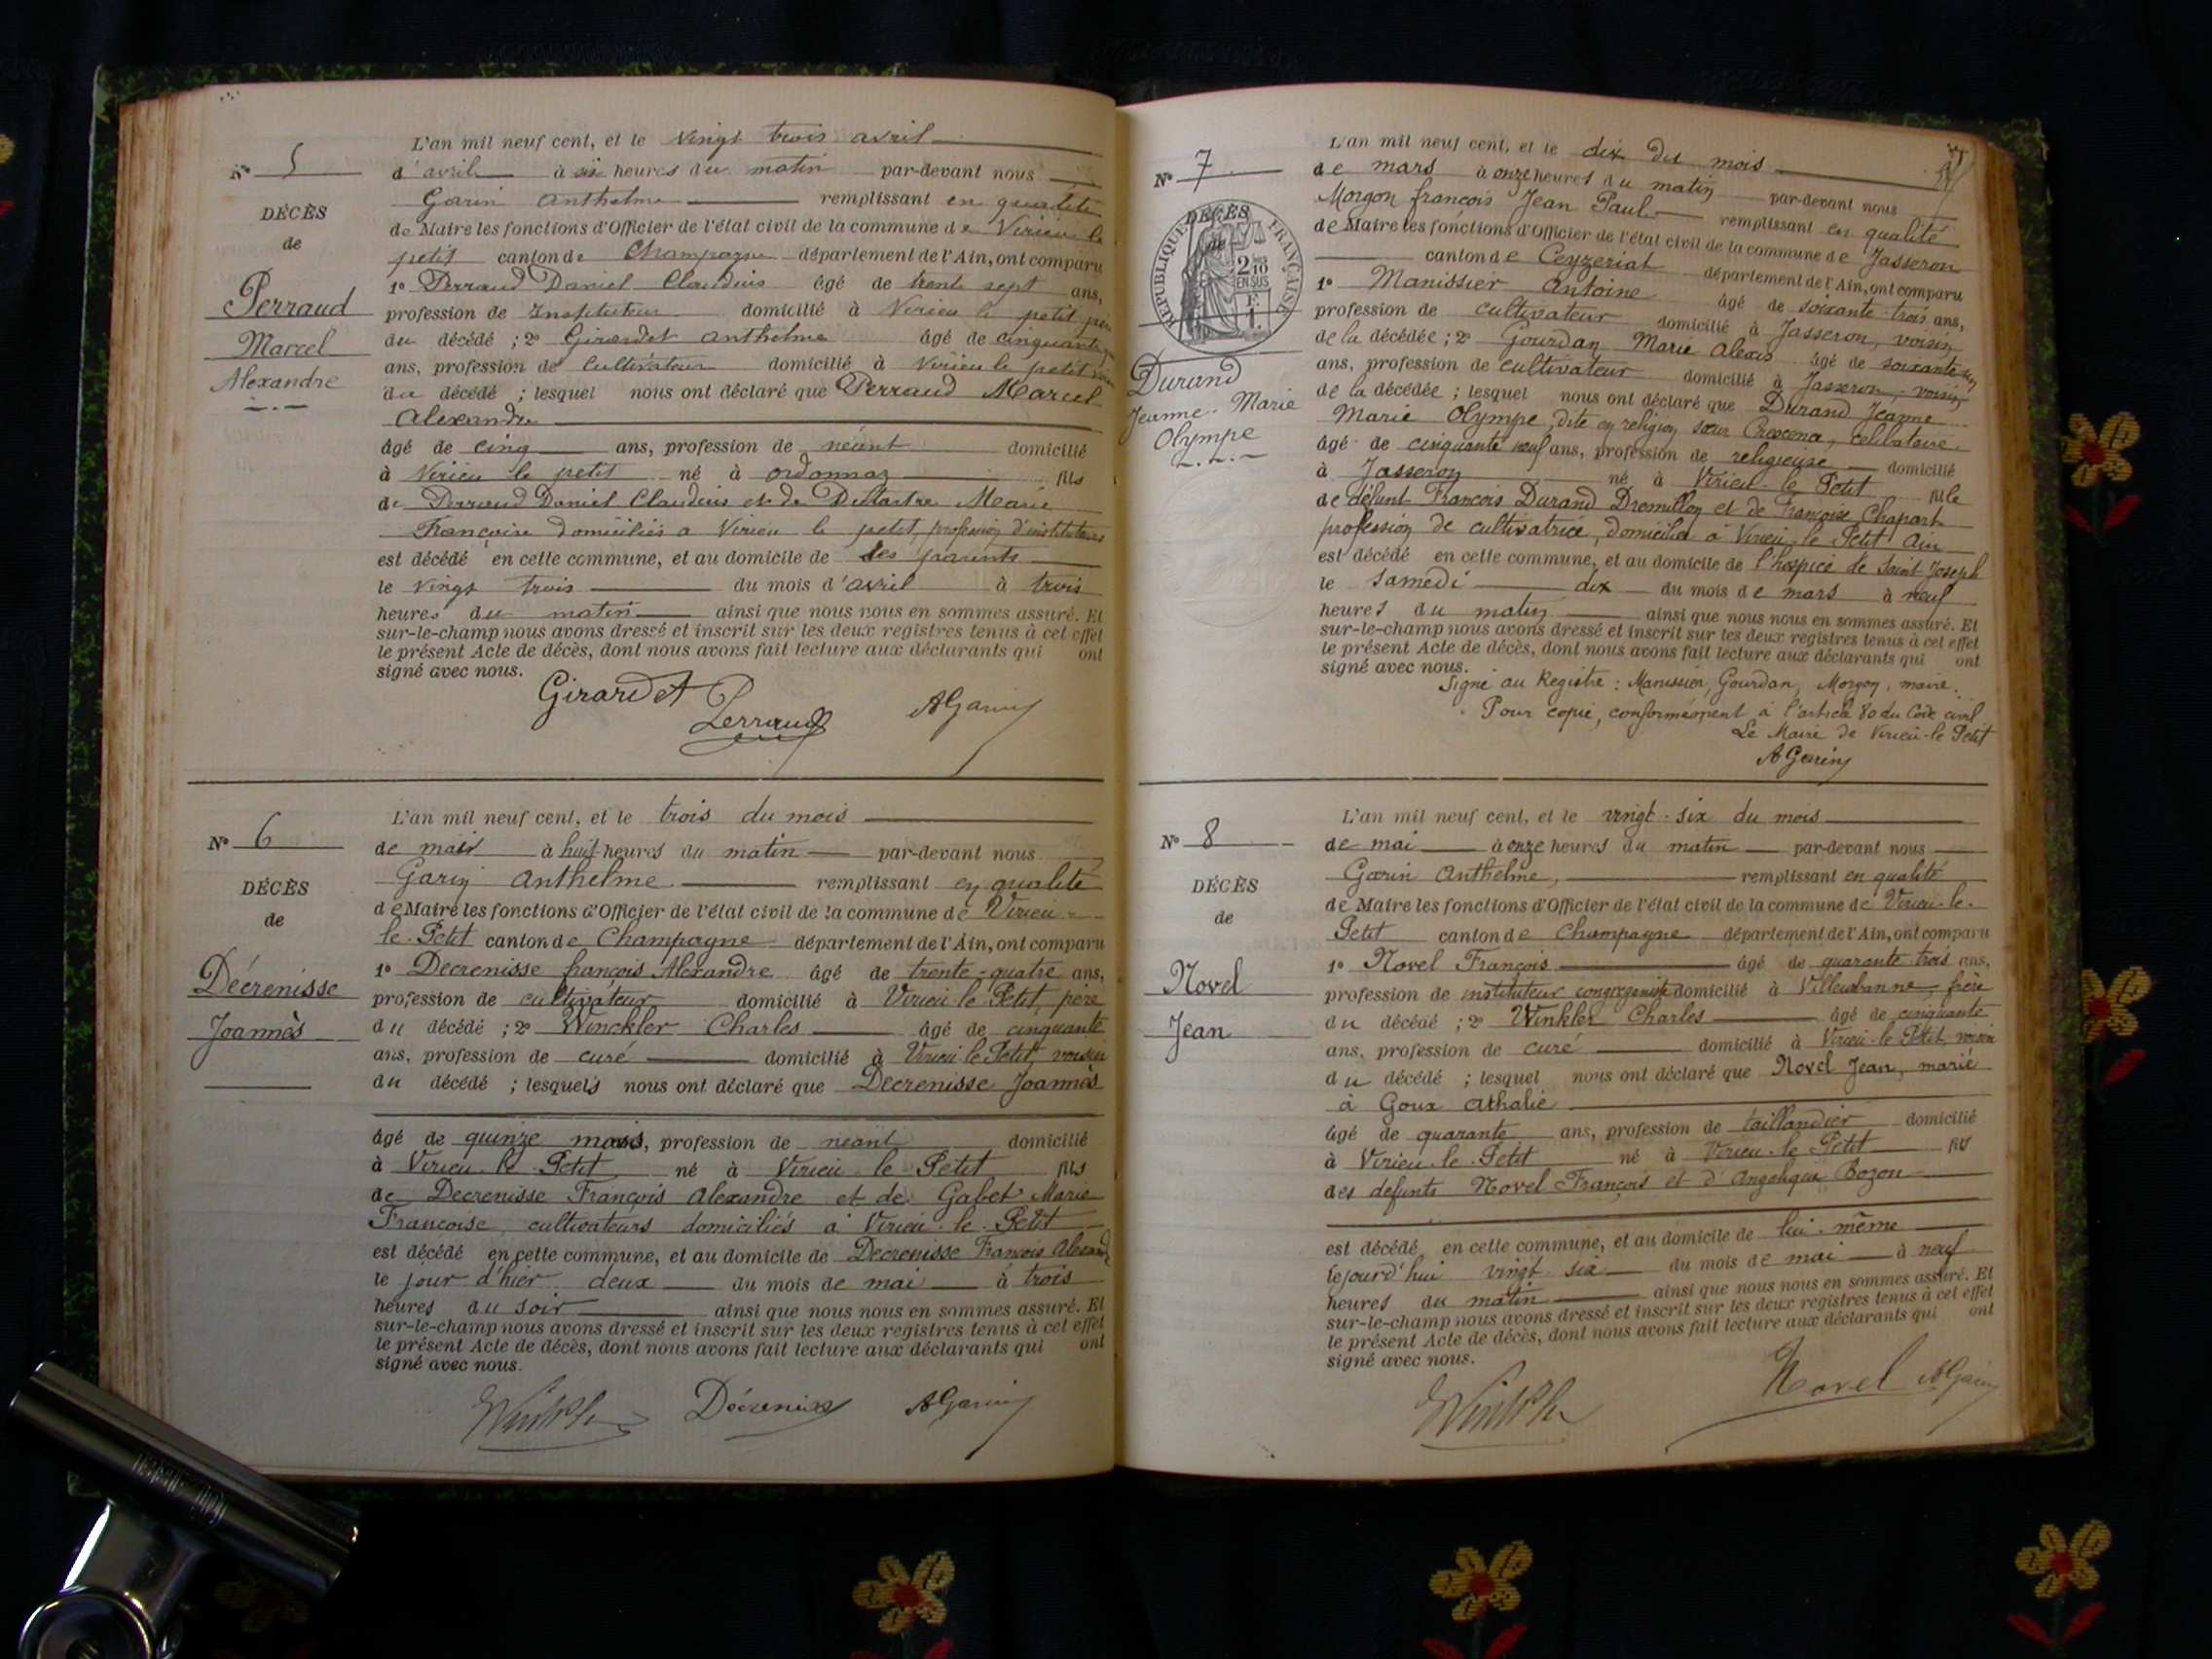 N° 5
DÉCÈS
de
Perraud
Marcel
Alexandre
L'an mil neuf cent, et le vingt trois avril
d'avril à six heures du matin par-devant nous
Garin Anthelme remplissant en qualité
de Maire les fonctions d'Officier de l'état civil de la commune de Virieu le
petit canton de Champagne département de l'Ain, ont comparu
1° Perraud Daniel Claudius âgé de trente sept ans,
profession de Instituteur domicilié à Virieu le petit père
du décédé ; 2° Girardet Anthelme âgé de cinquante
ans, profession de Cultivateur domicilié à Virieu le petit
du décédé ; lesquel nous ont déclaré que Perraud Marcel
Alexandre
âgé de cinq ans, profession de néant domicilié
à Virieu le petit né à ordonnaz fils
de Perraud Daniel Claudius et de Marie
Françoise domiciliés a Virieu le petit, profession d'instituteurs
est décédé en cette commune, et au domicile de ses parents
le vingt trois du mois d'avril à trois
heures du matin ainsi que nous nous en sommes assuré. Et
sur-le-champ nous avons dressé et inscrit sur les deux registres tenus à cet effet
le présent Acte de décès, dont nous avons fait lecture aux déclarants qui ont
signé avec nous.
Girardet Perraud AGarin
N° 6
DÉCÈS
de
Décrenisse
Joannès
L'an mil neuf cent, et le trois du mois
de mai à huit heures du matin par-devant nous
Garin Anthelme remplissant en qualité
de Maire les fonctions d'Officier de l'état civil de la commune de Virieu-
le-Petit canton de Champagne département de l'Ain, ont comparu
1° Decrenisse françois Alexandre âgé de trente-quatre ans,
profession de cultivateur domicilié à Virieu le Petit, père
du décédé ; 2° Winckler Charles âgé de cinquante
ans, profession de curé domicilié à Virieu le Petit, voisin
du décédé ; lesquels nous ont déclaré que Decrenisse Joannès
âgé de quinze mois, profession de néant domicilié
à Virieu-le-Petit né à Virieu-le-Petit fils
de Decrenisse François Alexandre et de Gabet Marie
Francoise, cultivateurs domiciliés à Virieu-le-Petit
est décédé en cette commune, et au domicile de Decrenisse François Alexandre
le jour d'hier deux du mois de mai à trois
heures du soir ainsi que nous nous en sommes assuré. Et
sur-le-champ nous avons dressé et inscrit sur les deux registres tenus à cet effet
le présent Acte de décès, dont nous avons fait lecture aux déclarants qui ont
signé avec nous.
Winkler Décrenisse AGarin
N° 7
DÉCÈS
de
RÉPUBLIQUE FRANÇAISE
2/10
EN SUS
Durand
Jeanne-Marie
Olympe
L'an mil neuf cent, et le dix du mois
de mars à onze heures du matin par-devant nous
Morgon françois Jean Paul remplissant en qualité
de Maire les fonctions d'Officier de l'état civil de la commune de Jasseron
canton de Ceyzeriat département de l'Ain, ont comparu
1° Manissier Antoine âgé de soixante-trois ans,
profession de cultivateur domicilié à Jasseron, voisin
de la décédée ; 2° Gourdan Marie Alexis âgé de soixante
ans, profession de cultivateur domicilié à Jasseron, voisin
de la décédée ; lesquel nous ont déclaré que Durand Jeanne
Marie Olympe, dite en religion sœur célibataire
âgé de cinquante neuf ans, profession de religieuse domicilié
à Jasseron né à Virieu-le-Petit fille
de défunt François Durand Dromillon et de Françoise Chapart
profession de cultivatrice, domiciliée à Virieu-le-Petit Ain
est décédé en cette commune, et au domicile de l'hospice de Saint Joseph
le samedi dix du mois de mars à neuf
heures du matin ainsi que nous nous en sommes assuré. Et
sur-le-champ nous avons dressé et inscrit sur les deux registres tenus à cet effet
le présent Acte de décès, dont nous avons fait lecture aux déclarants qui ont
signé avec nous.
Signé au Registre : Manissier, Gourdan, Morgon, maire.
Pour copie, conformément à l'article 80 du Code civil
Le Maire de Virieu-le-Petit
AGarin
N° 8
DÉCÈS
de
Novel
Jean
L'an mil neuf cent, et le vingt-six du mois
de mai à onze heures du matin par-devant nous
Garin Anthelme, remplissant en qualité
de Maire les fonctions d'Officier de l'état civil de la commune de Virieu-le-
Petit canton de Champagne département de l'Ain, ont comparu
1° Novel François âgé de quarante-trois ans,
profession de instituteur congréganiste domicilié à Villeurbanne, frère
du décédé ; 2° Winkler Charles âgé de cinquante
ans, profession de curé domicilié à Virieu-le-Petit, voisin
du décédé ; lesquel nous ont déclaré que Novel Jean, marié
à Goux Athalie
âgé de quarante ans, profession de taillandier domicilié
à Virieu-le-Petit né à Virieu-le-Petit fils
des defunts Novel François et d'Angélique Bozon
est décédé en cette commune, et au domicile de lui-même
lejourd'hui vingt-six du mois de mai à neuf
heures du matin ainsi que nous nous en sommes assuré. Et
sur-le-champ nous avons dressé et inscrit sur les deux registres tenus à cet effet
le présent Acte de décès, dont nous avons fait lecture aux déclarants qui ont
signé avec nous.
Winkler Novel AGarin